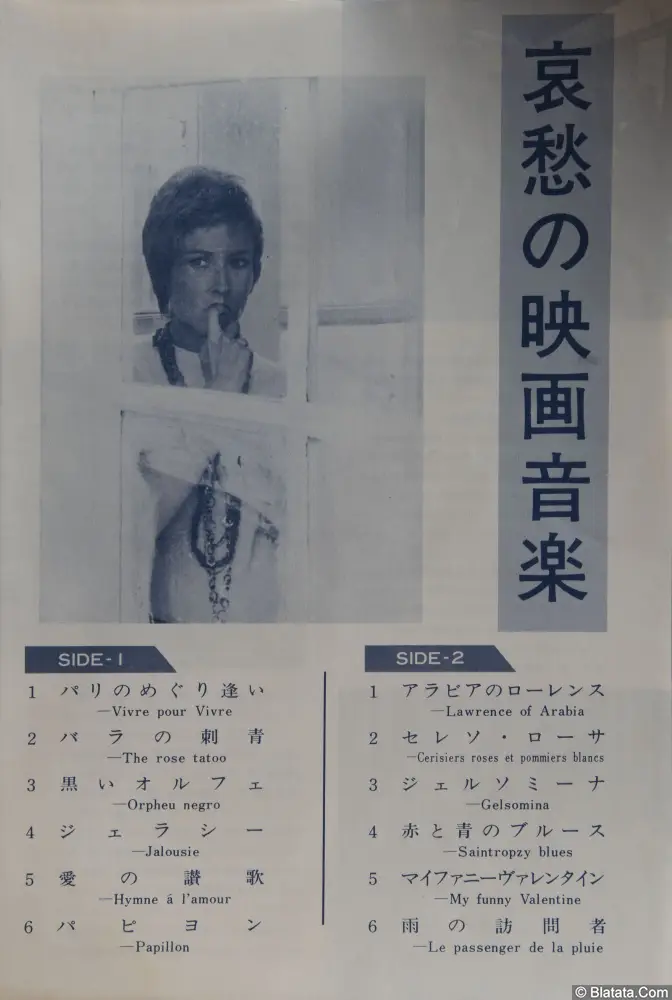 哀愁の映画音楽
SIDE-1
1 パリのめぐり逢い
—Vivre pour Vivre
2 バラの刺青
—The rose tatoo
3 黒いオルフェ
—Orpheu negro
4 ジェラシー
—Jalousie
5 愛の讃歌
—Hymne á l'amour
6 パピヨン
—Papillon
SIDE-2
1 アラビアのローレンス
—Lawrence of Arabia
2 セレソ・ローサ
—Cerisiers roses et pommiers blancs
3 ジェルソミーナ
—Gelsomina
4 赤と青のブルース
—Saintropzy blues
5 マイファニーヴァレンタイン
—My funny Valentine
6 雨の訪問者
—Le passenger de la pluie
© Blatata.Com